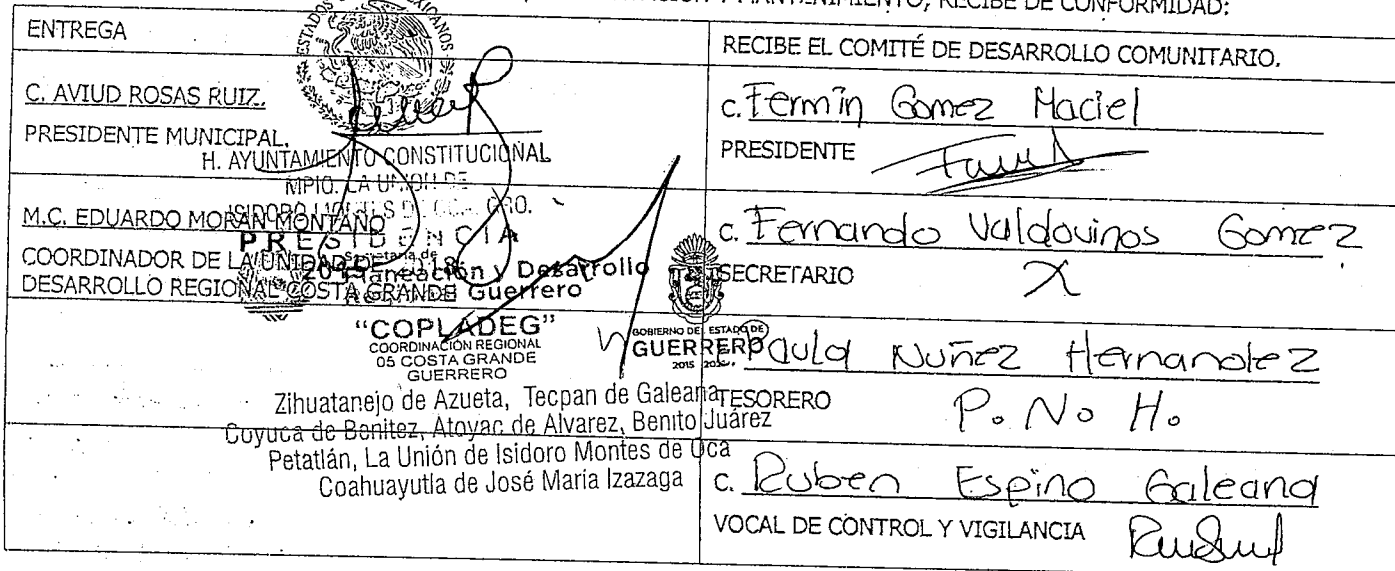 MANTENIMIENTO, RECIBE DE CONFORMIDAD:
ENTREGA
C. AVIUD ROSAS RUIZ.
PRESIDENTE MUNICIPAL.
H. AYUNTAMIENTO CONSTITUCIONAL
MPIO. LA UNION DE
M.C. EDUARDO MORAN MONTAÑO
PRESIDENCIA
COORDINADOR DE LA UNIDAD DE
Secretaría de
Planeación y Desarrollo
DESARROLLO REGIONAL COSTA GRANDE
Guerrero
"COPLADEG"
COORDINACIÓN REGIONAL
05 COSTA GRANDE
GUERRERO
GOBIERNO DEL ESTADO DE
GUERRERO
2015
Zihuatanejo de Azueta, Tecpan de Galeana
Coyuca de Benitez, Atoyac de Alvarez, Benito Juárez
Petatlán, La Unión de Isidoro Montes de Oca
Coahuayutla de José María Izazaga
RECIBE EL COMITÉ DE DESARROLLO COMUNITARIO.
C. Fermin Gomez Maciel
PRESIDENTE
C. Fernando Valdovinos Gomez
SECRETARIO X
Paula Nuñez Hernandez
TESORERO P. N. H.
C. Ruben Espino Galeana
VOCAL DE CONTROL Y VIGILANCIA